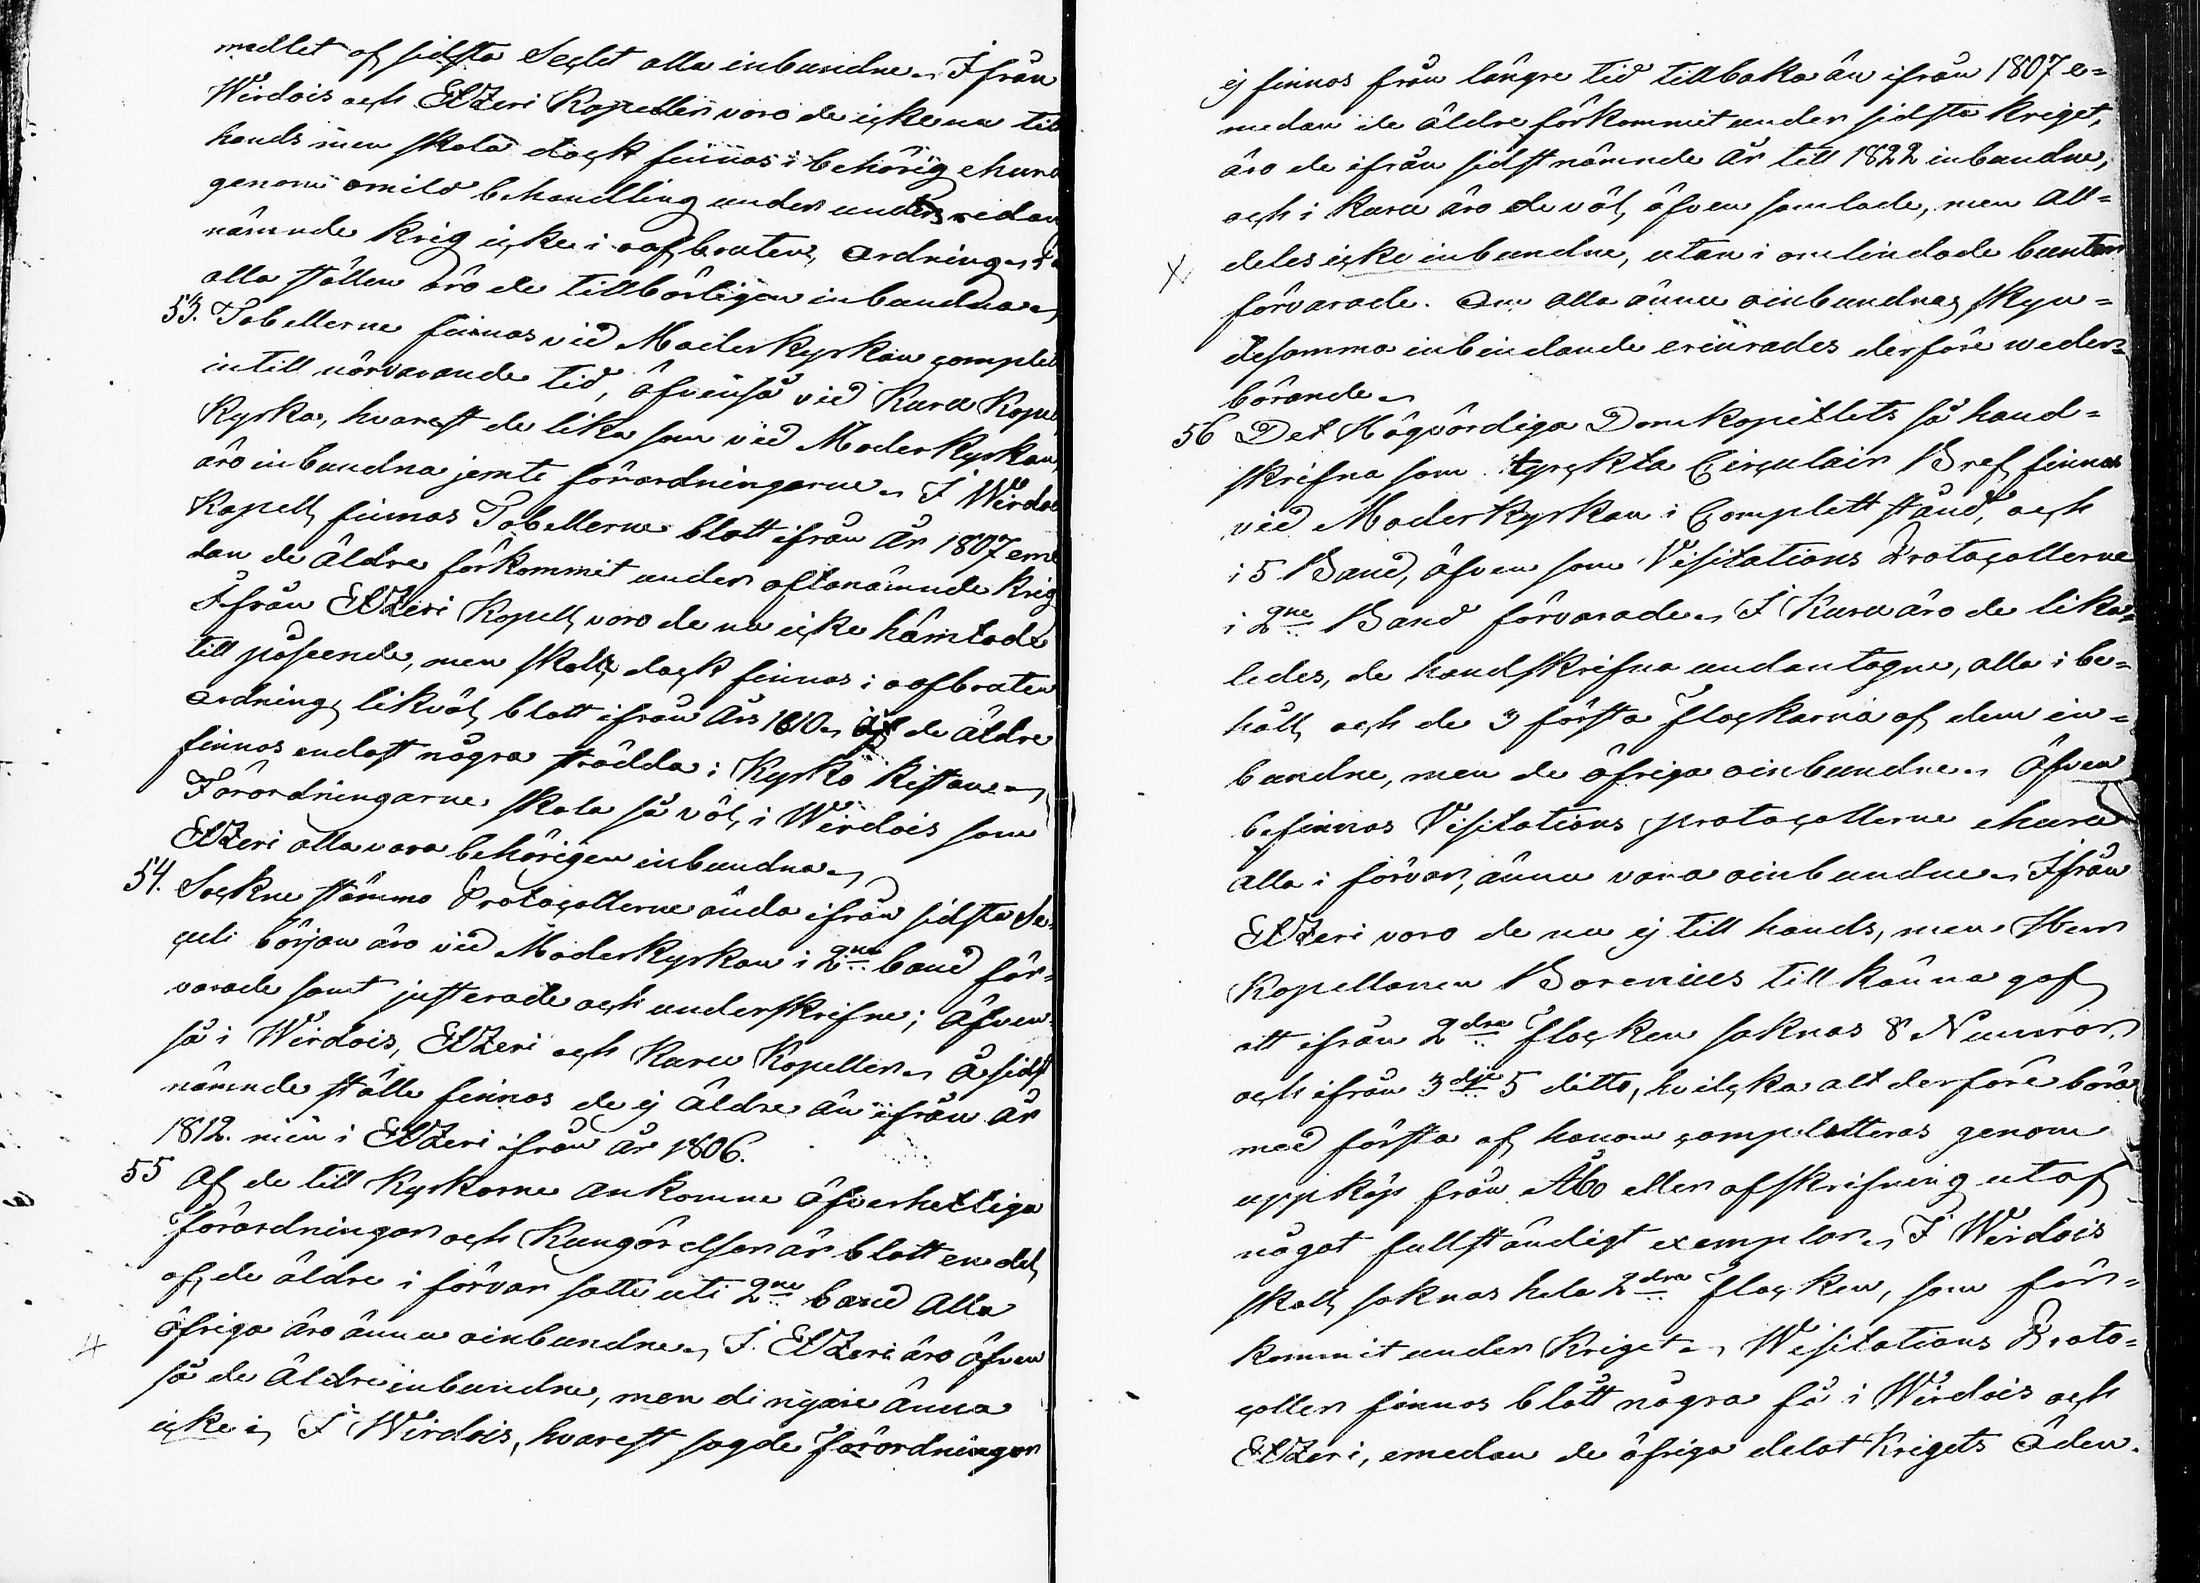 medlet af sidsta Seclet alla inbundne. Ifrån
Wirdois och Etzeri Kapeller voro de icke nu till
hands men skola dock finnas i behörig ehuru
genom omild behandling under sedan
nämnde krig icke i oafbruten ordning.
alla ställen äro de tillbörligen inbundna.
53. Tabellerne finnas vid Moderkyrkan complet
intill närvarande tid, äfvenså vid Kuru Kapell
kyrka, hvarest de lika som vid Moderkyrkan,
äro inbundna jemte förordningarne. I Wirdois
Kapell finnas Tabellerne blott ifrån år 1807 eme
dan de äldre förkommit under oftanämnde krig
Ifrån Etzeri Kapell voro de nu icke hämtade
till påseende, men skola dock finnas i oafbruten
ordning, likväl blott ifrån års 1810. af de äldre
finnas endast några strödda i Kyrko kistan.
Förordningarne skola så väl i Wirdois som
Etzeri alla vara behörigen inbundna.
54. Sockne stämmo Protocollerne ända ifrån sidsta Se-
culi början äro vid Moderkyrkan i 2ne band för-
varade samt justerade och underskrifne; äfven-
så i Wirdois, Etzeri och Kuru Kapeller. Å sidst
nämnde ställe finnas de ej äldre än ifrån år
1812. men i Etzeri ifrån år 1806.
55 Af de till kyrkorne ankomne öfverhetliga
förordningar och Kungörelser är blott en del
af de äldre i förvar satte uti 2ne band Alla
öfriga äro ännu oinbundne. I. Etzeri äro äfven
så de äldre inbundne, men de nyare ännu
icke. I Wirdois, hvarest sagde förordningar
ej finnas från längre tid tillbaka än ifrån 1807 e-
medan de äldre förkommit under sidsta kriget,
äro de ifrån sidstnämnde år till 1822 inbundne,
och i Kuru äro de väl, äfven samlade, men all-
deles icke inbundne, utan i omlindade buntar
förvarade. Om alla ännu oinbundnas skyn-
desamma inbindande erinrades derföre weder-
börande.
56 Det Högvördiga Domkapitlets så hand-
skrifna som tryckta Circulair Bref finnas
vid Moderkyrkan i Complett stånd, och
i 5 Band, äfven som Visitations Protocollerne
i 2ne Band förvarade. I Kuru äro de lika-
ledes, de handskrifna undantagne, alla i be-
håll och de 3 första flockarna af dem in-
bundne, men de öfriga oinbundne. Äfven
befinnas Visitations protocollerne ehuru
alla i förvar, ännu vara oinbundne. Ifrån
Etzeri voro de nu ej till hands, men Herr
Kapellanen Borenius till känna gaf
att ifrån 2dra flocken saknas 8 Numror
och ifrån 3dje 5 ditto, hvilcka alt derföre böra
med första af honom completteras genom
uppköp från Åbo eller afskrifning utaf
något fullständigt exemplar. I Wirdois
skall saknas hela 2dra flocken, som för-
kommit under kriget. Wisitations Proto-
coller finnas blott några få i Wirdois och
Etzeri, emedan de öfriga delat krigets öden.